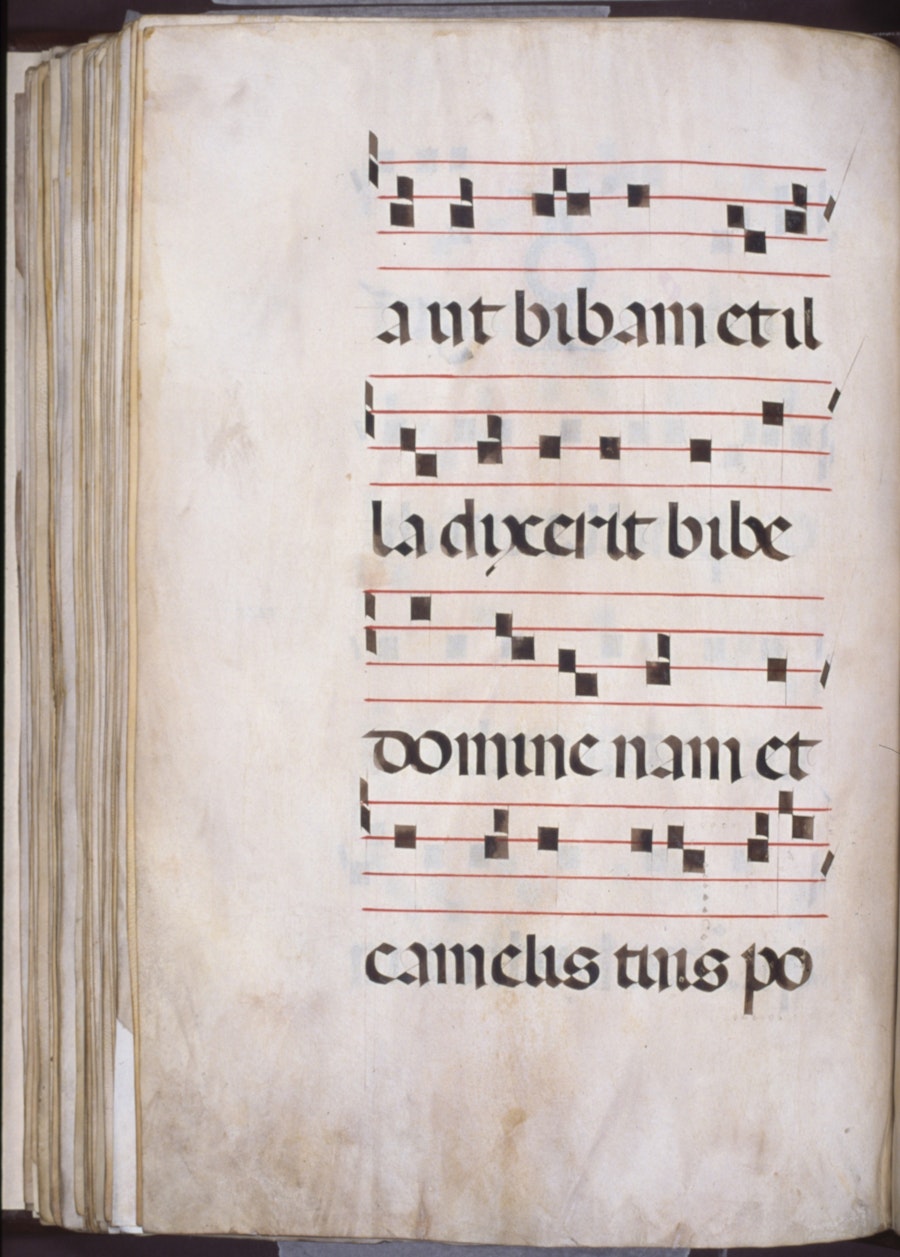 a ut bibam et il
la dixerit bibe
domine nam et
camelis tuis po